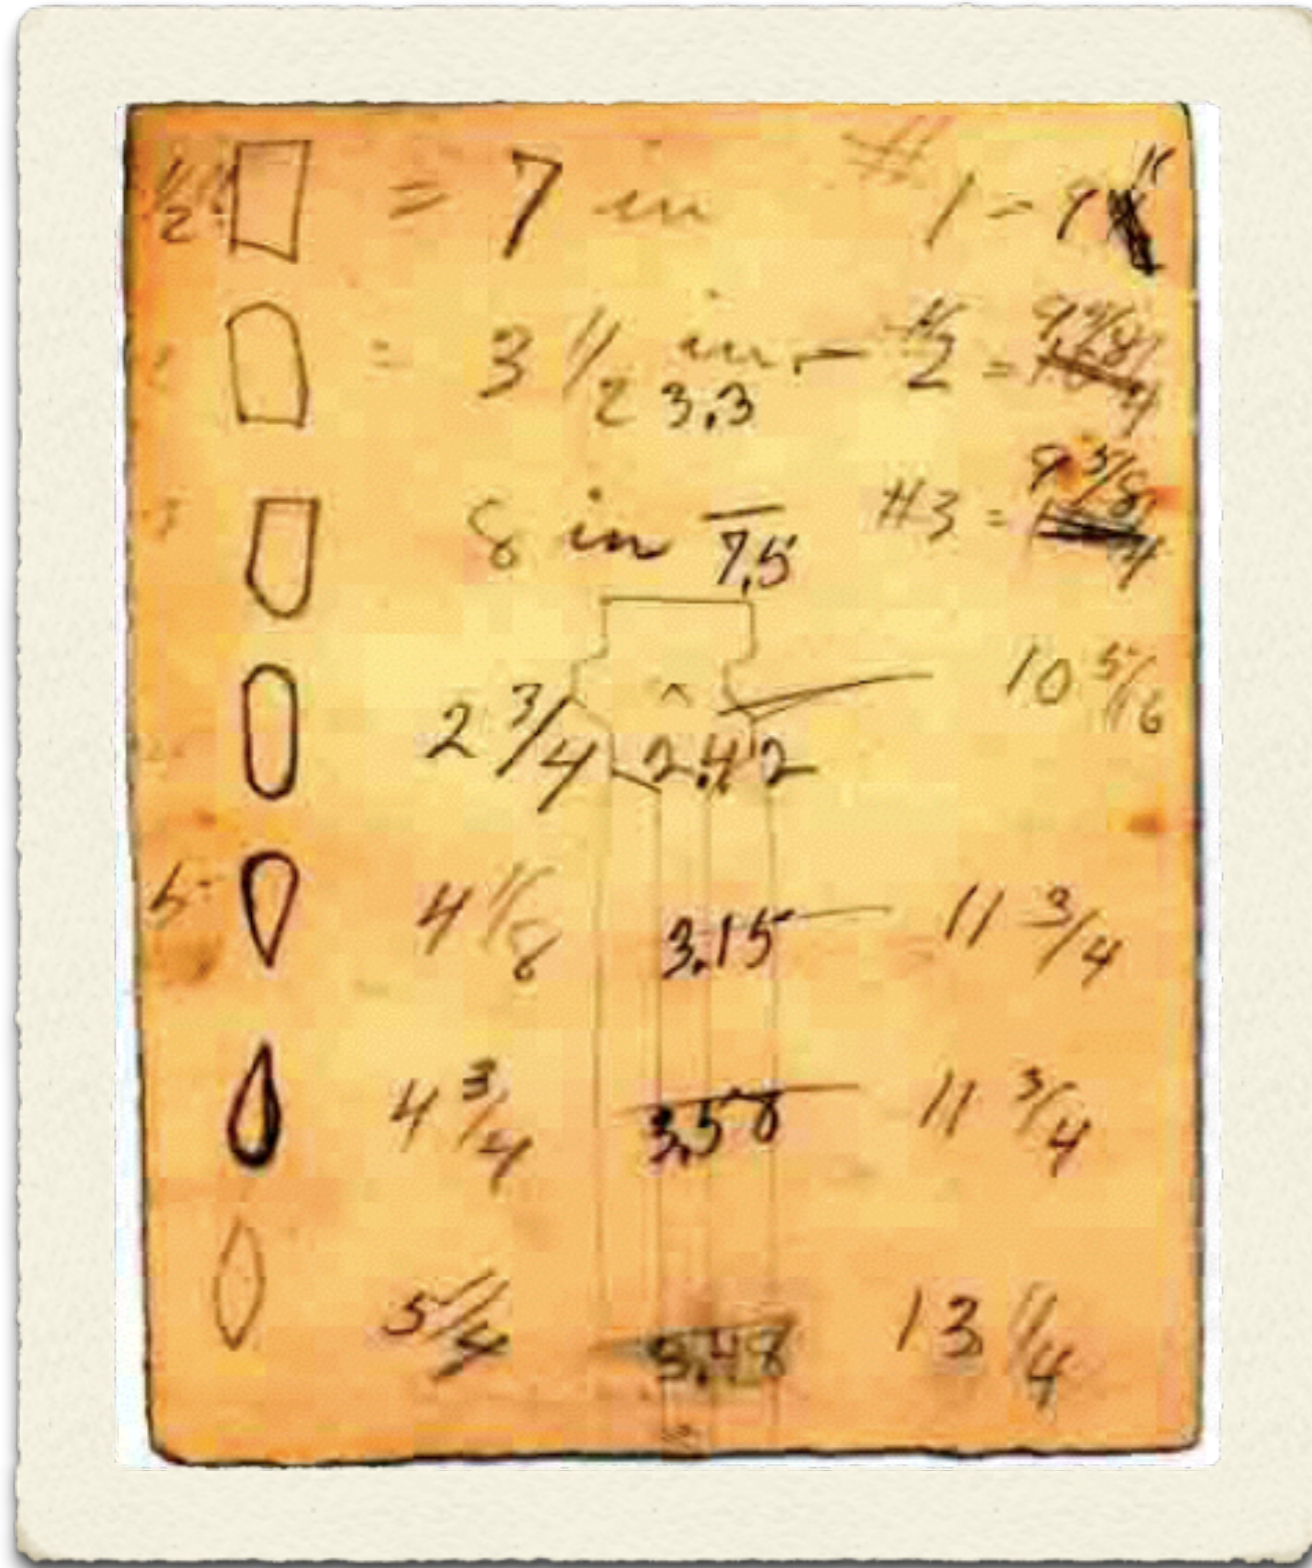 1/2 = 7 in # 1 = 9
= 3 1/2 in. — # 2 = 9 9/8
3.3
8 in 7.5 #3 = 9 5/8
2 3/4 2.42 10 5/16
5 4 1/8 3.15 11 3/4
4 3/4 3.58 11 3/4
5 1/4 3.48 13 1/4